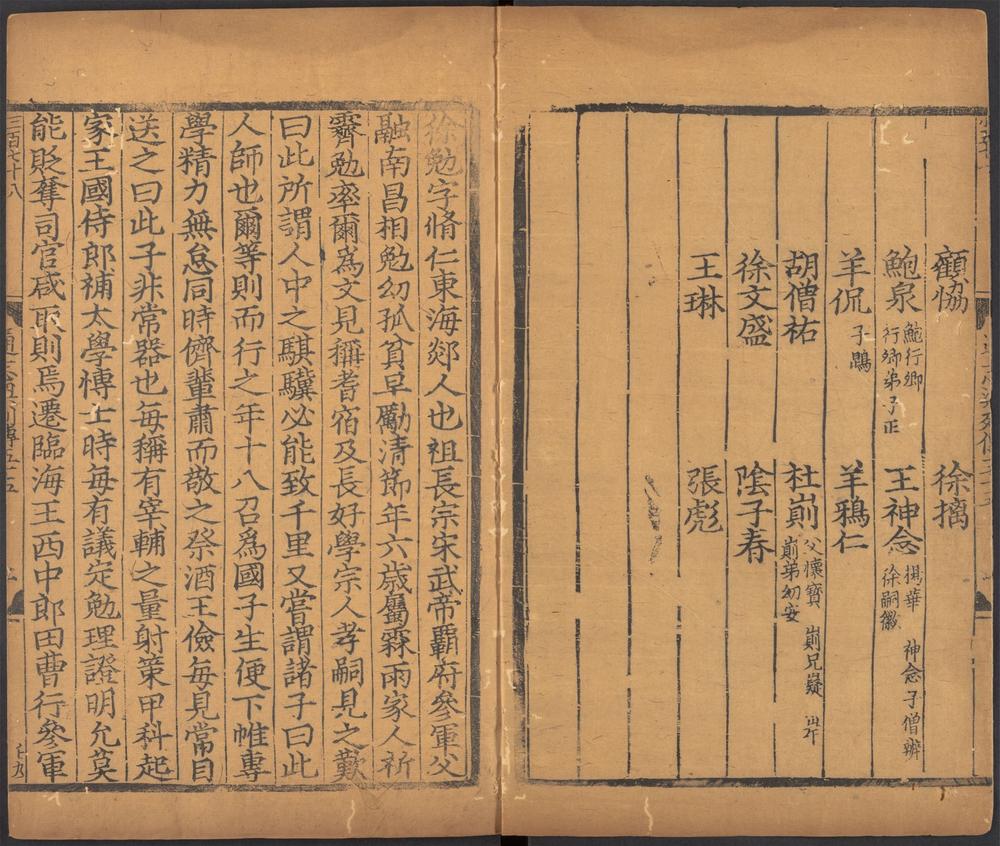 顧協 徐摛
鮑泉 鮑行卿 行卿弟子正 王神念 楊華 神念子僧辯 徐嗣徽
羊侃 子鶤 羊鴉仁
胡僧祐 杜崱 父懷寶 崱兄嶷 崱弟幼安
徐文盛 陰子春
王琳 張彪
徐勉字脩仁東海郯人也祖長宗宋武帝霸府參軍父
融南昌相勉幼孤貧早勵清節年六歲屬霖雨家人祈
霽勉率爾為文見稱耆宿及長好學宗人孝嗣見之歎
曰此所謂人中之騏驥必能致千里又嘗謂諸子曰此
人師也爾等則而行之年十八召為國子生便下帷專
學精力無怠同時儕輩肅而敬之祭酒王儉每見常目
送之曰此子非常器也每稱有宰輔之量射策甲科起
家王國侍郎補太學博士時每有議定勉理證明允莫
能貶奪司官咸取則焉遷臨海王西中郎田曹行參軍
三百七十八